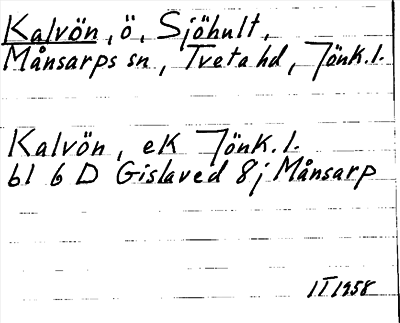 Kalvön, ö, Sjöhult,
Månsarps sn, Tveta hd, Jönk.l.
Kalvön, ek Jönk.l.
bl 6 D Gislaved 8j Månsarp
IT 1958